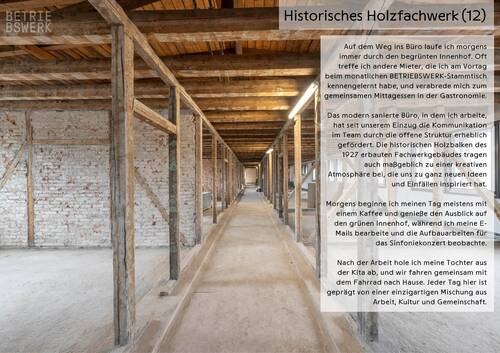 BETRIE
BSWERK
Historisches Holzfachwerk (12)
Auf dem Weg ins Büro laufe ich morgens
immer durch den begrünten Innenhof. Oft
treffe ich andere Mieter, die ich am Vortag
beim monatlichen BETRIEBSWERK-Stammtisch
kennengelernt habe, und verabrede mich zum
gemeinsamen Mittagessen in der Gastronomie.
Das modern sanierte Büro, in dem ich arbeite,
hat seit unserem Einzug die Kommunikation
im Team durch die offene Struktur erheblich
gefördert. Die historischen Holzbalken des
1927 erbauten Fachwerkgebäudes tragen
auch maßgeblich zu einer kreativen
Atmosphäre bei, die uns zu ganz neuen Ideen
und Einfällen inspiriert hat.
Morgens beginne ich meinen Tag meistens mit
einem Kaffee und genieße den Ausblick auf
den grünen Innenhof, während ich meine E-
Mails bearbeite und die Aufbauarbeiten für
das Sinfoniekonzert beobachte.
Nach der Arbeit hole ich meine Tochter aus
der Kita ab, und wir fahren gemeinsam mit
dem Fahrrad nach Hause. Jeder Tag hier ist
geprägt von einer einzigartigen Mischung aus
Arbeit, Kultur und Gemeinschaft.